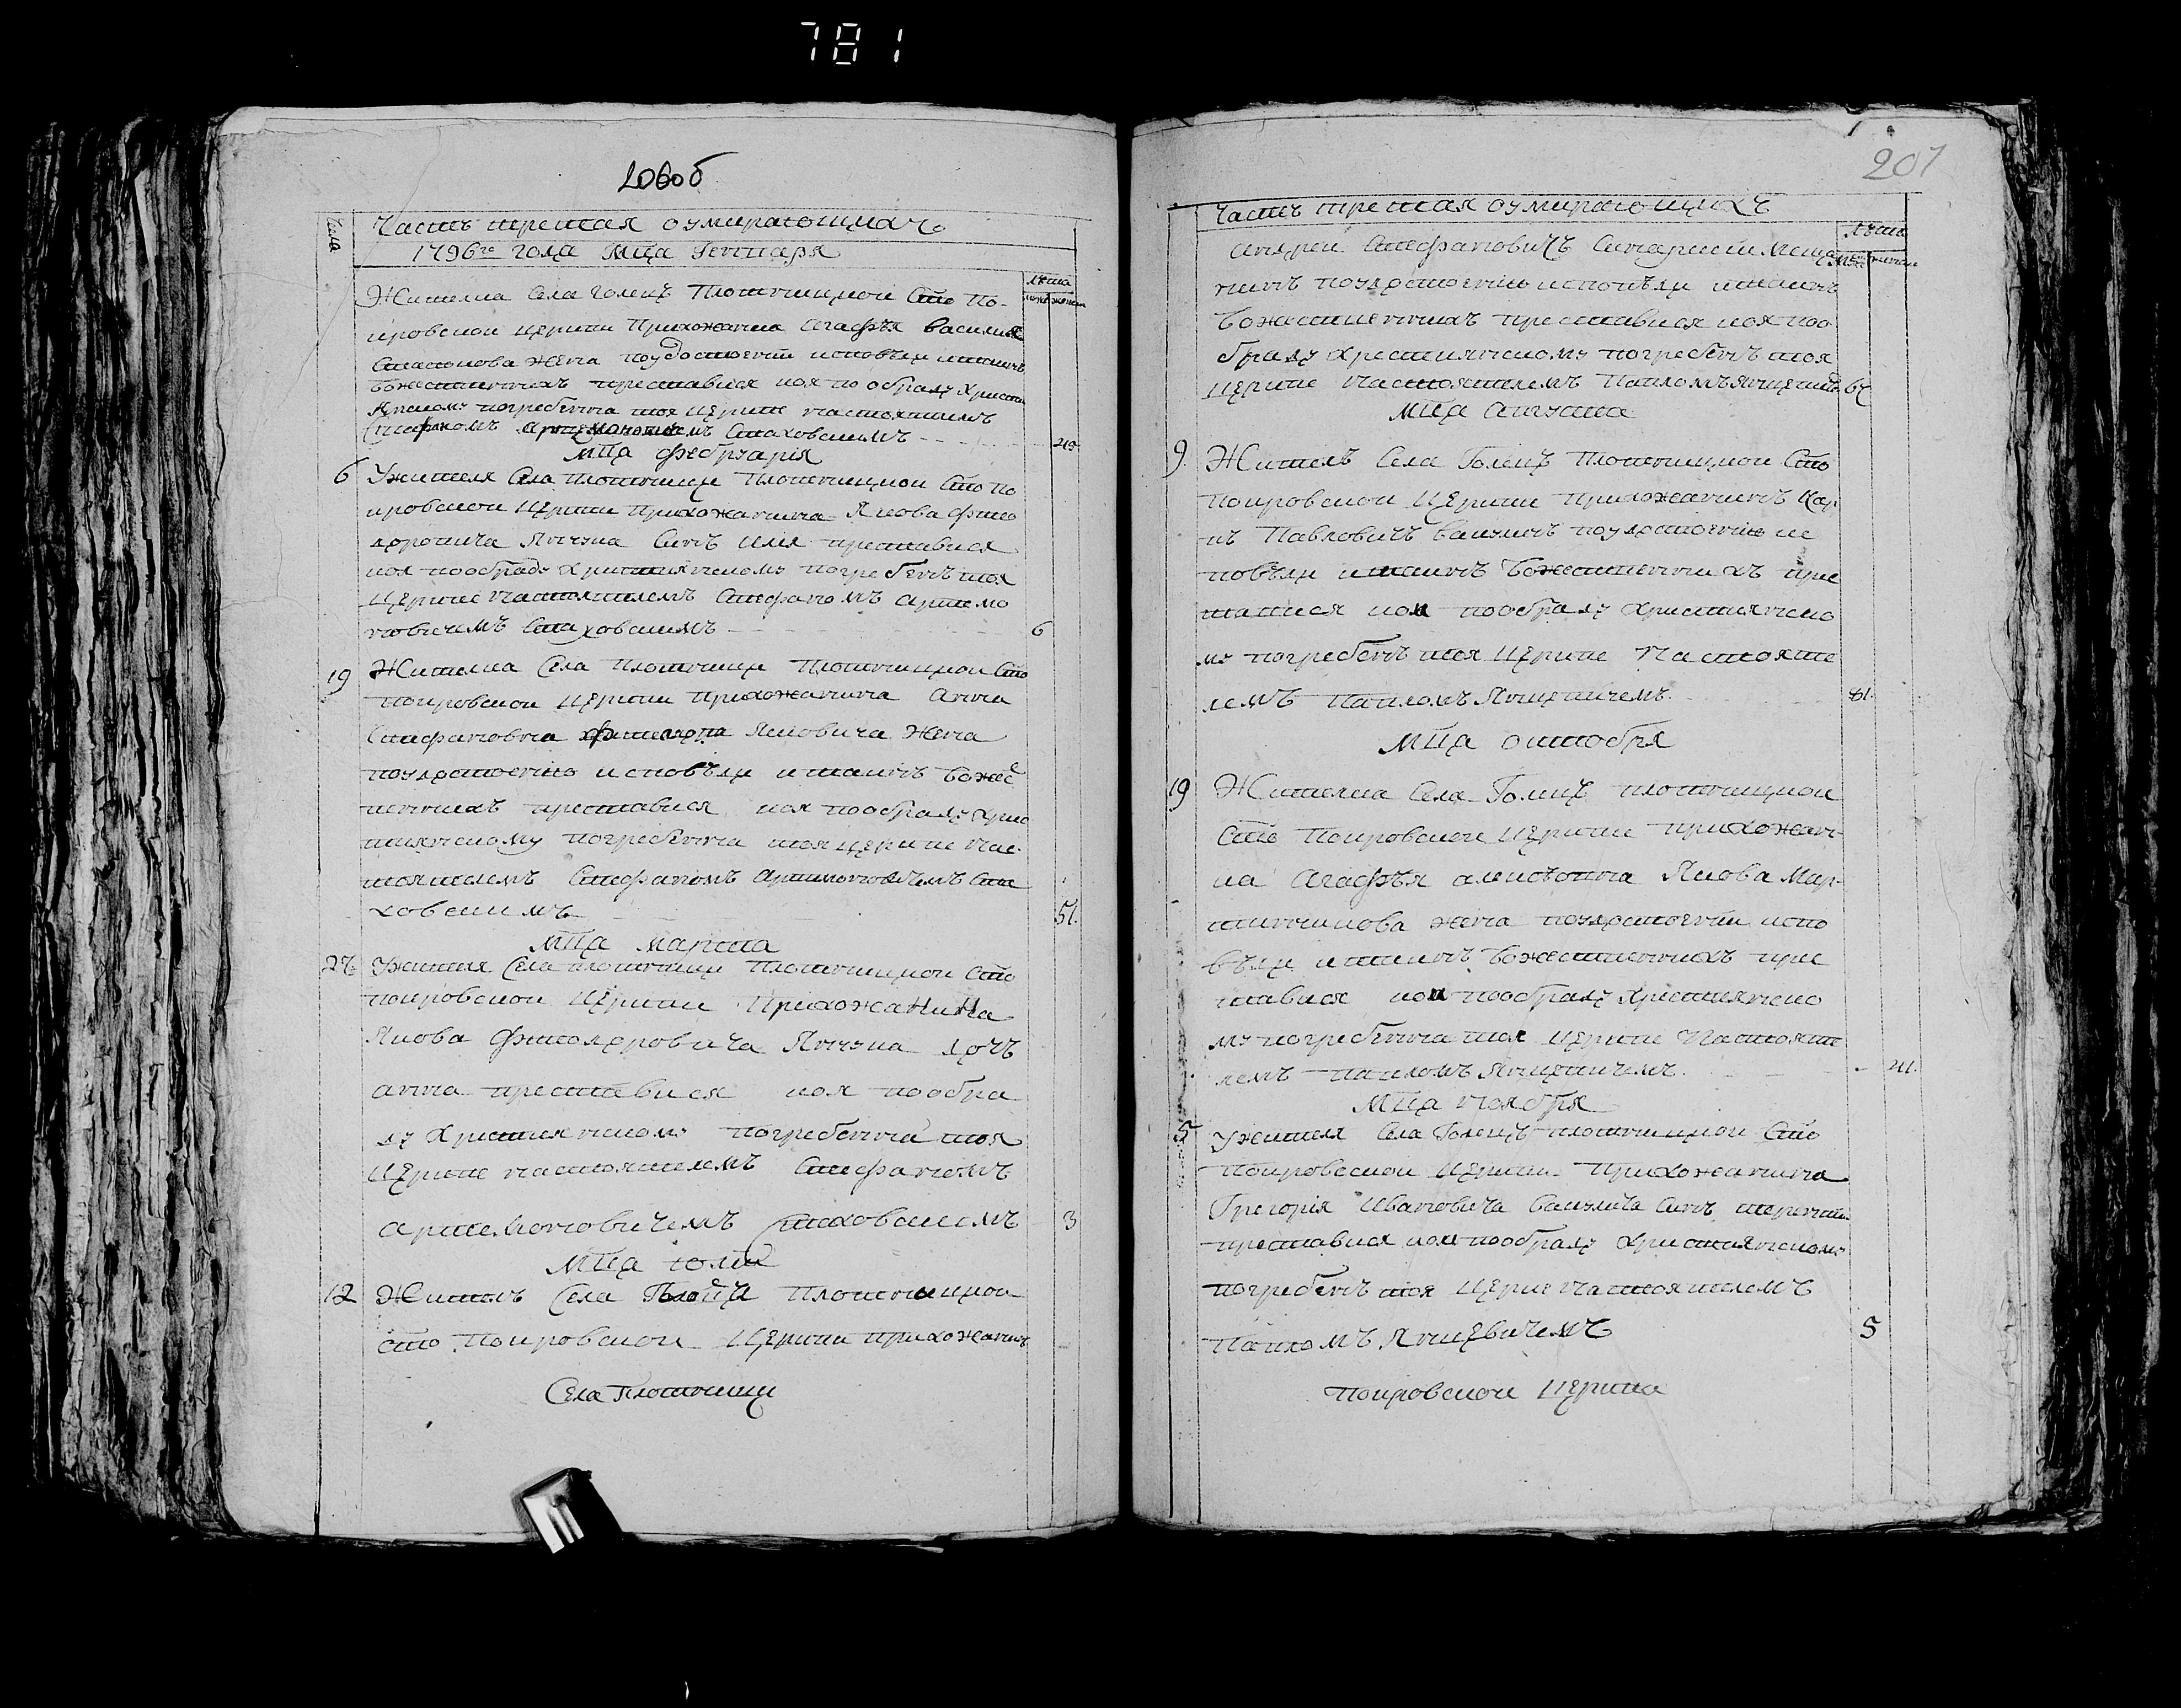 781
206об
Числа
Часть третая оумирающихъ
1796го года Мца Генъваря
лѣта
муж женск
Жителка Села Голецъ Плотницкой Сто По-
кровской церкви Прихожанка Агафѣя василия
жена поудостоении исповѣди итаинъ
божественнихъ преставися коя по обряду Христи
янскому погребенна тоя церкве настоятелемъ
Стефаномъ Артемоновичемъ Стаховскимъ
Мца февруария
6 Ужителя Села Плотници Плотницкой Сто По
кровской церкви Прихожанина Якова Фтео
доровича Янчука Синъ Илия преставися
коя пообряду християнскому погребенъ тоя
Церкве настоятелемъ Стефаномъ Артемо
новичемъ Стаховскимъ 6
19 Жителка Села Плотници Плотницкой Сто
покровской церкви Прихожанина Анна
Стефановна Яковича Жена
поудостоению исповѣди итаинъ Божес
твеннихъ преставися коя пообряду Хрис
тиянскому погребенна тоя церкве нас
тоятелемъ Стефаномъ Артимоновичемъ Ста
ховскимъ 51
Мца Марта
Ужителя Села плотници Плотницкой Сто
покровской Церкви Прихожанина
Якова Фтеодоровича Янчука дочъ
анна преставися коя пообря
ду Християнскому погребенна тоя
Церкве настоятелемъ Стефаномъ
Артемоновичемъ Стаховскимъ 3
Мца юлия
12 Житель Села Плотницкой
Сто Покровской Церкви прихожанинъ
Села Плотници
207
Часть третая оумирающихъ
лѣта
муж женск
Андрей Стефановичъ
нинъ поудостоению исповѣди итаинъ
Божественнихъ преставися коя поо
бряду християнскому погребенъ тоя
церкве настоятелемъ Павломъ
Мца Августа
9 Житель Села Голецъ Плотницкой Сто
Покровской Церкви прихожанинъ Кар
пъ Павловичъ поудостоению ис
повѣди итаинъ божественнихъ пре
ставися коя пообряду християнско
му погребенъ тоя Церкве Настояте
лемъ Павломъ Янцевичемъ 81
Мца октобря
19 Жителка Села Голецъ плотницкой
Сто Покровской Церкви прихожан-
ка Агафѣя Якова Мар-
жена поудостоении испо
вѣди итаинъ божественнихъ пре
ставися коя пообряду Християнско
му погребенна тоя Церкве Настояте
лемъ Павломъ Янцевичемъ
Мца ноября
5 Ужителя Села Голецъ плотницкой Сто
покровской Церкви Прихожанина
Григория Ивановича Синъ терентий
преставися коя пообряду християнскому
погребенъ тоя Церкве настоятелемъ
Павломъ Янцевичемъ 5
покровской Церкви